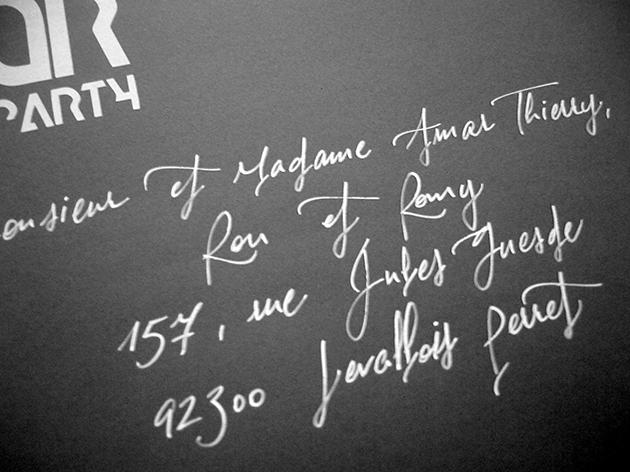 PARTY
Monsieur et Madame Amar Thierry,
Ron et Romy
157, rue Jules Guesde
92300 Levallois Perret